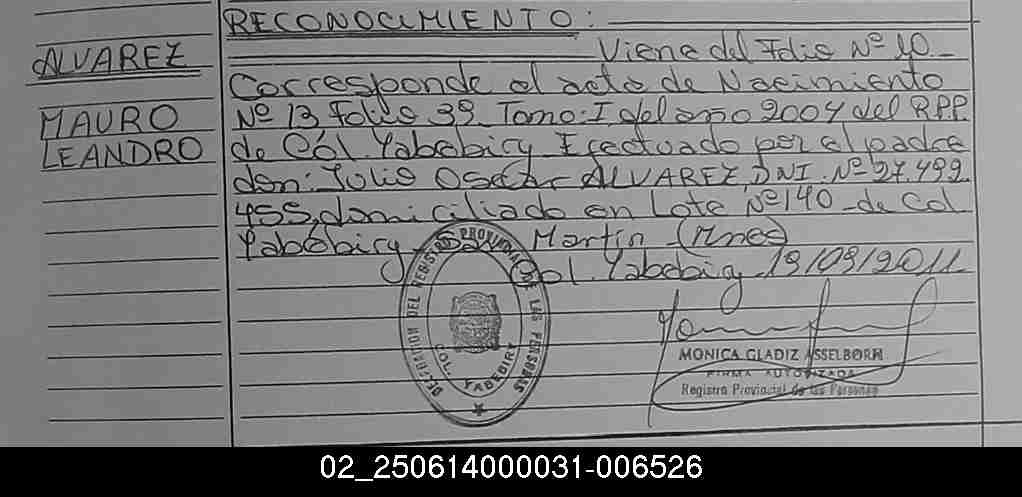 RECONOCIMIENTO:
Viene del Folio Nº 10
ALVAREZ
MAURO
LEANDRO
Corresponde al acta de Nacimiento
Nº 13 Folio 39 Tomo: I del año 2004 del R.P.P.
de Cól. Yabebiry Efectuado por el padre
don: Julio Oscar ALVAREZ, DNI. Nº 27.499.
455, domiciliado en Lote Nº 140 de Col
Yabebiry San Martín (Mnes)
Col. Yabebiry 19/09/2011.
DELEGACION DEL REGISTRO PROVINCIAL DE LAS PERSONAS
COL. YABEBIRY
MONICA GLADIZ ASSELBORN
FIRMA AUTORIZADA
Registro Provincial de las Personas
02_250614000031-006526